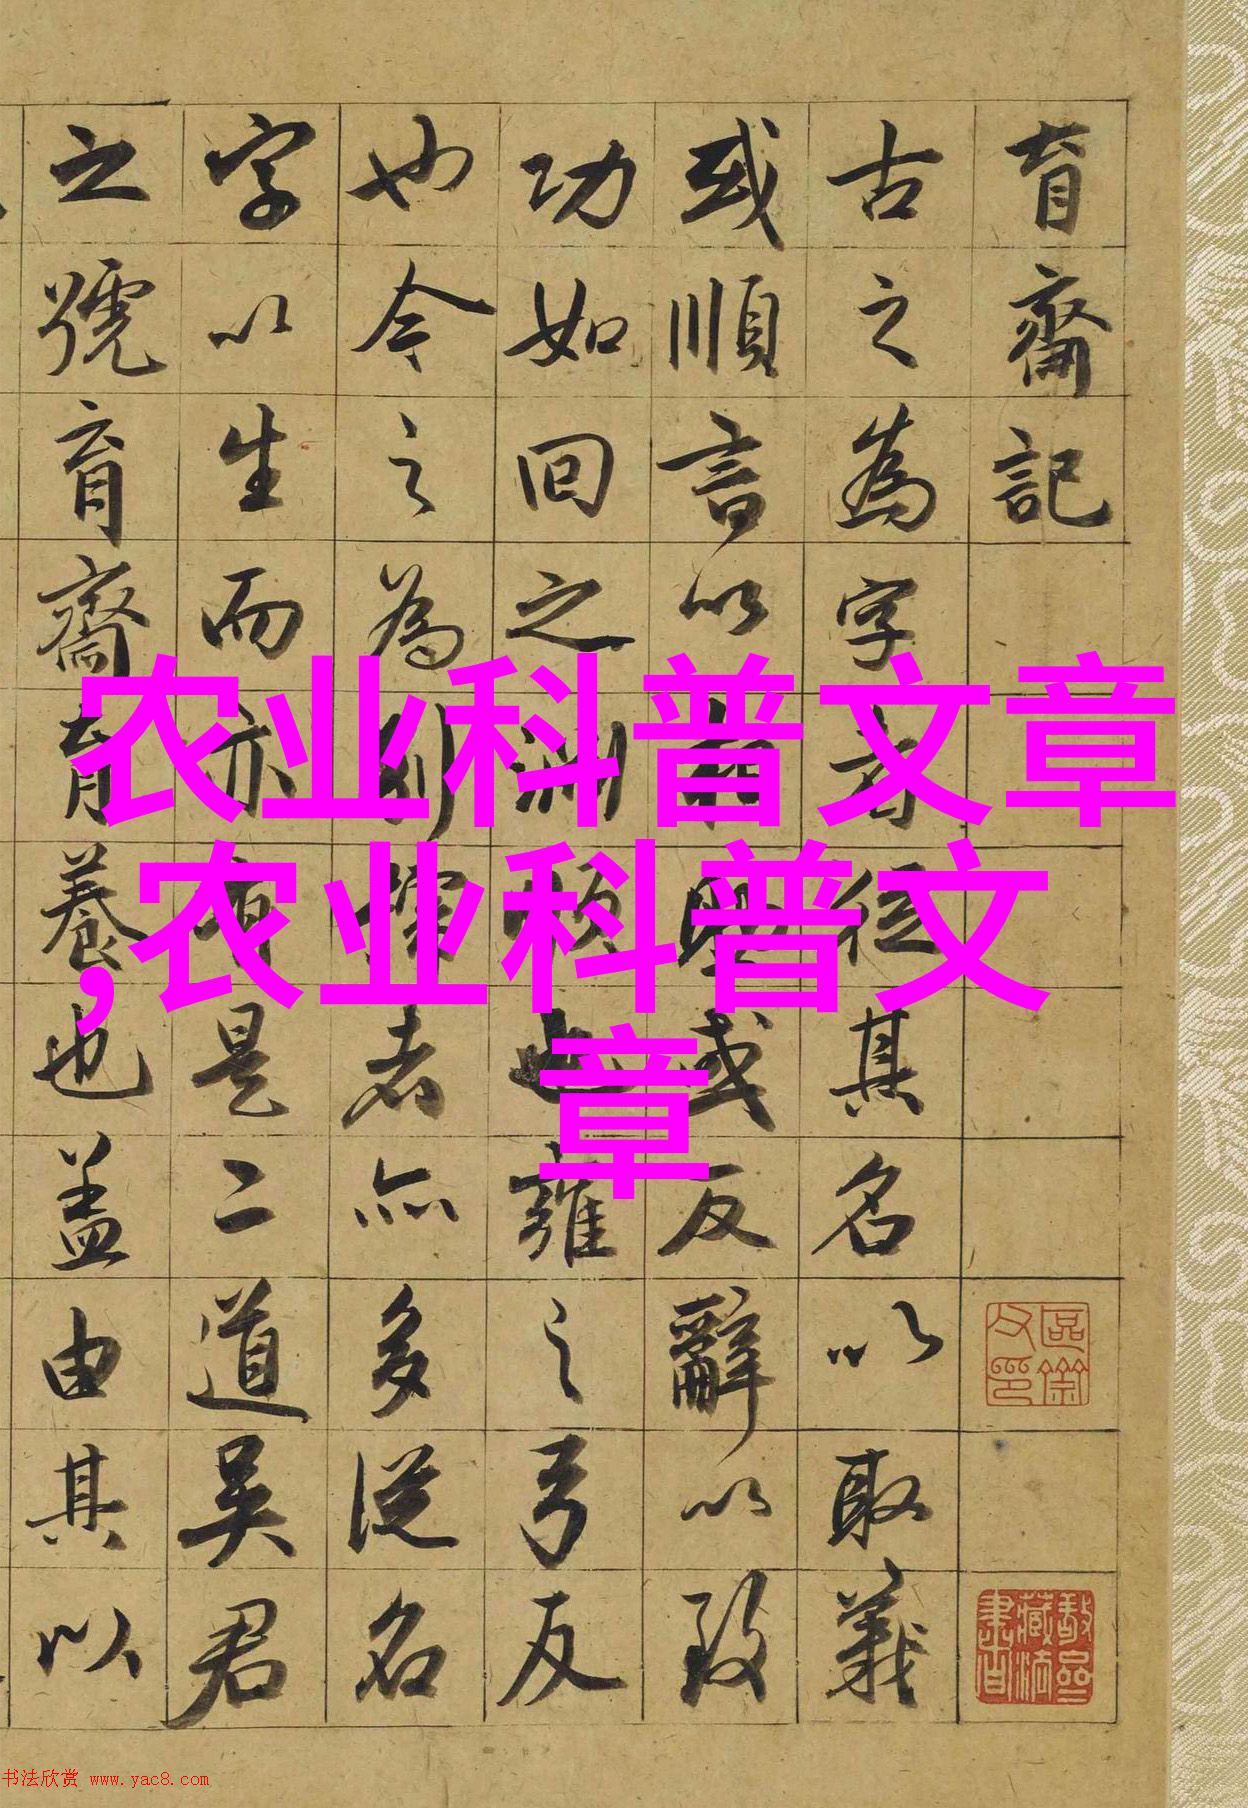 育齋記
古之為字者從其名以取義
或順言以或反辭以致
功如回之淵也雍之弓反
也今之為別稱者亦多從名
字以生而亦有是二道吳君
之號育齋育養也蓋由其以
农业科普文章
,农业科普文
章
书法欣赏 www.yac8.com